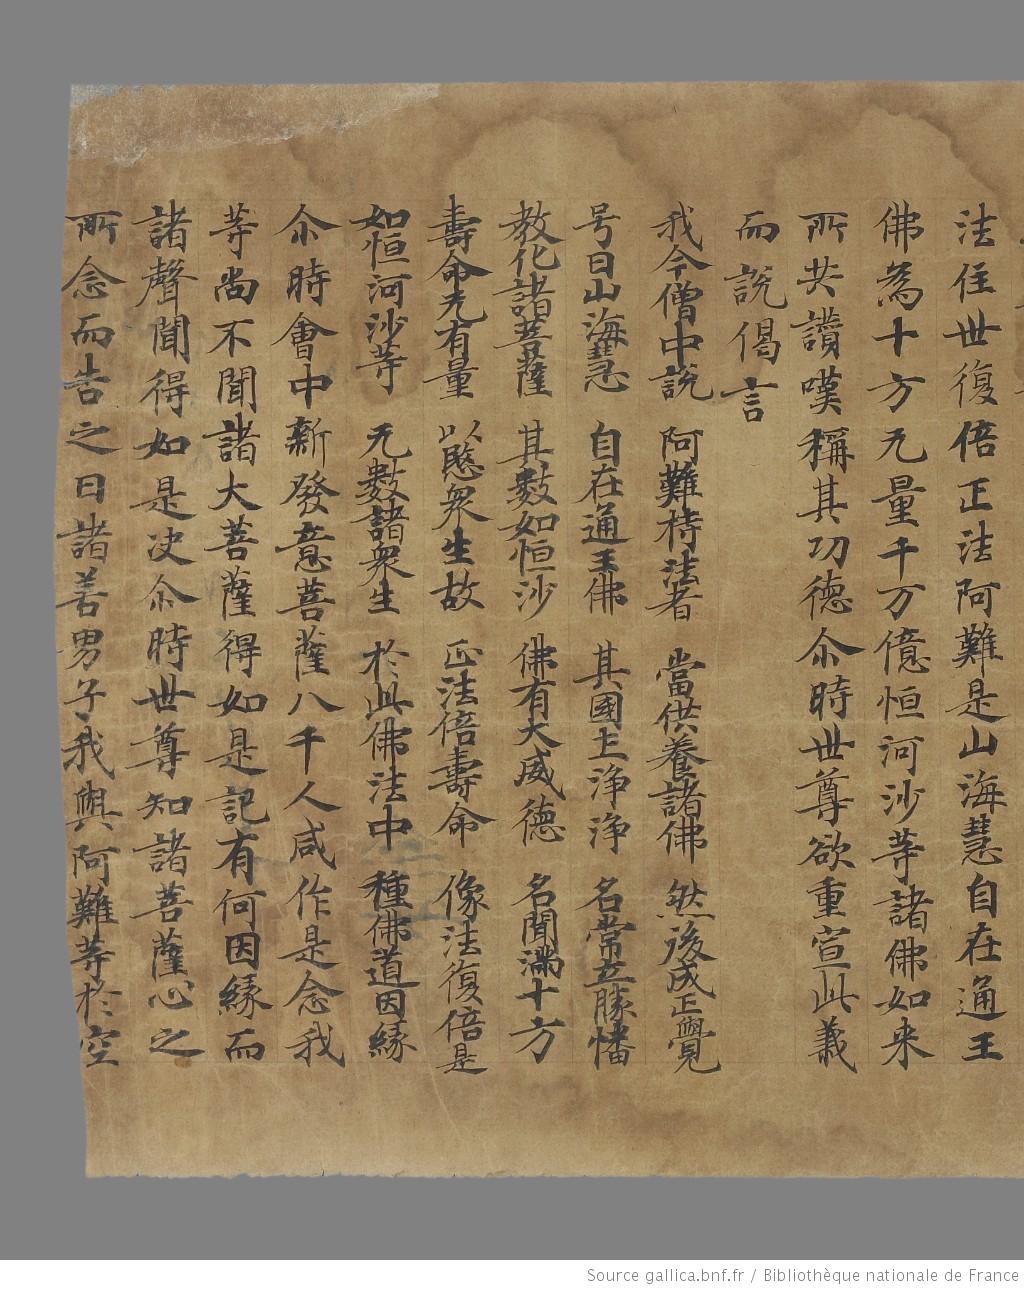 法住世復倍正法阿難是山海慧自在通王
佛為十方无量千万億恒河沙等諸佛如来
所共讃嘆稱其功德尒時世尊欲重宣此義
而說偈言
我今僧中說 阿難持法者 當供養諸佛 然後成正覺
号曰山海慧 自在通王佛 其國土浄浄 名常立勝幡
教化諸菩薩 其數如恒沙 佛有大威德 名聞滿十方
壽命无有量 以愍衆生故 正法倍壽命 像法復倍是
如恒河沙等 无數諸衆生 於此佛法中 種佛道因緣
尒時會中新發意菩薩八千人咸作是念我
等尚不聞諸大菩薩得如是記有何因緣而
諸聲聞得如是决尒時世尊知諸菩薩心之
所念而告之曰諸善男子我與阿難等於空
Source gallica.bnf.fr / Bibliothèque nationale de France